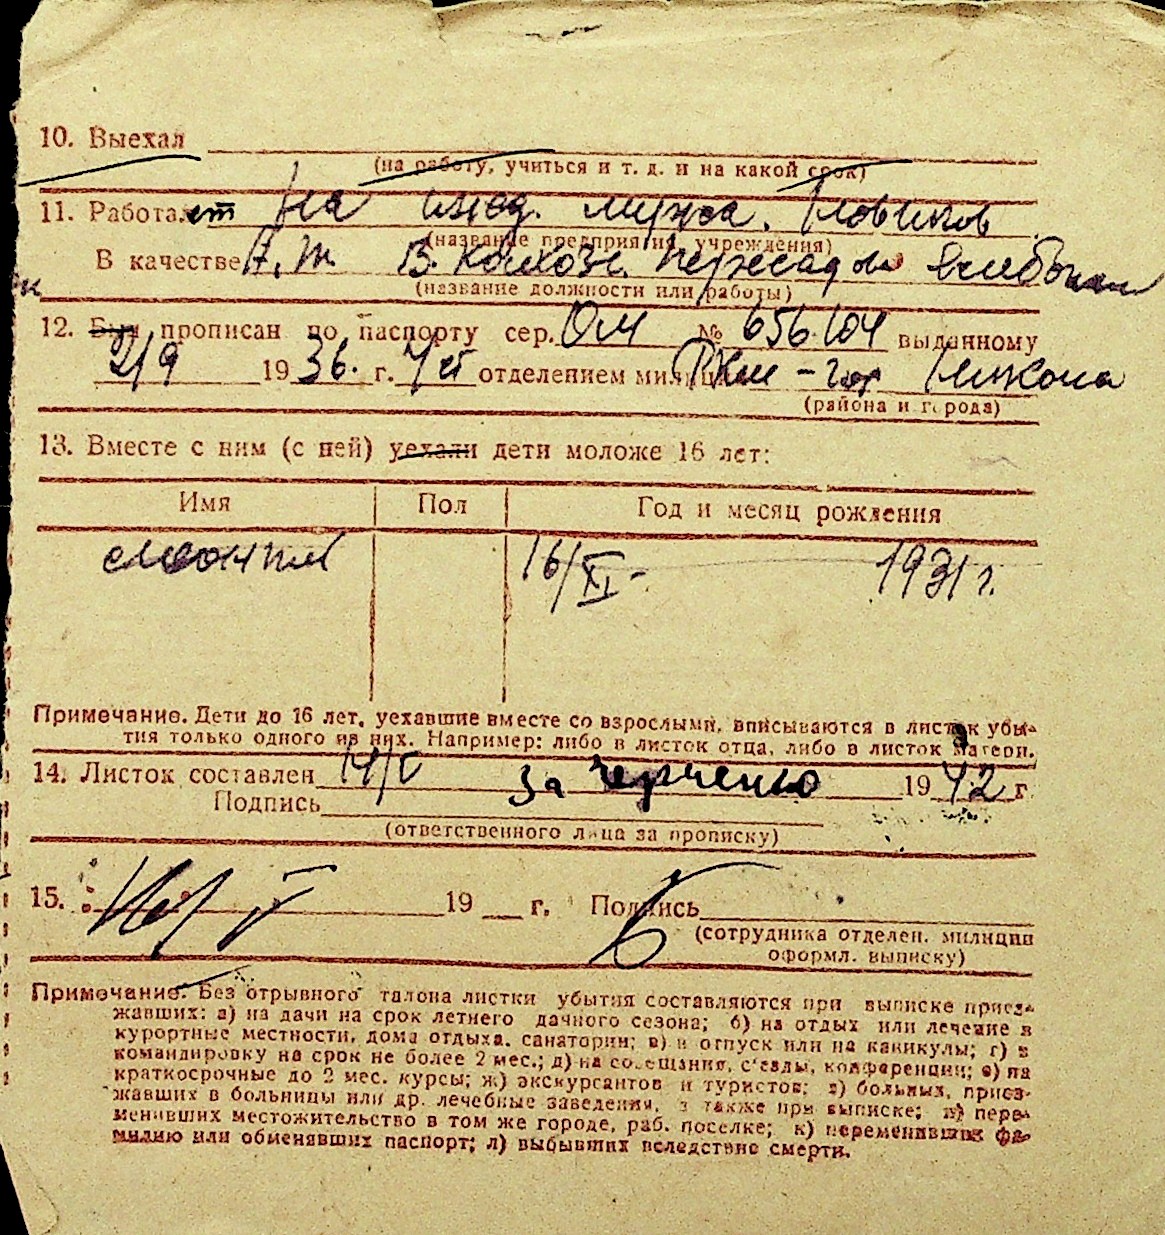 10. Выехал
(на работу, учиться и т. д. и на какой срок)
11. Работает На
(название предприятия, учреждения)
В качестве В. колхозе
(название должности или работы)
12. Был прописан по паспорту сер. ОМ № 656104 выданному
2/9 1936. г. 7 отделением милиции РКМ - гор
(района и города)
13. Вместе с ним (с ней) уехали дети моложе 16 лет:
Имя Пол Год и месяц рождения
16/XI - 1931 г.
Примечание. Дети до 16 лет, уехавшие вместе со взрослыми, вписываются в листок убы-
тия только одного из них. Например: либо в листок отца, либо в листок матери.
14. Листок составлен за 1942 г.
Подпись
(ответственного лица за прописку)
15. 19 г. Подпись
(сотрудника отделен. милиции
оформл. выписку)
Примечание. Без отрывного талона листки убытия составляются при выписке приез-
жавших: а) на дачи на срок летнего дачного сезона; б) на отдых или лечение в
курортные местности, дома отдыха, санатории; в) в отпуск или на каникулы; г) в
командировку на срок не более 2 мес.; д) на совещания, с'езды, конференции; е) на
краткосрочные до 2 мес. курсы; ж) экскурсантов и туристов; з) больных, приез-
жавших в больницы или др. лечебные заведения, а также при выписке; и) пере-
менивших местожительство в том же городе, раб. поселке; к) переменивших фа-
милию или обменявших паспорт; л) выбывших вследствие смерти.